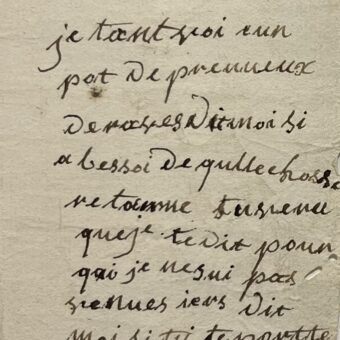 je tant voi eun
pot de prenueux
de raves dit moi si
a bessoi de qullechosse
retamme tu veru
que je te dit pour
qui je ne sui pas
venues iers dit
moi si tu te portte